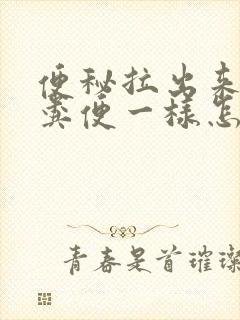 便秘拉出来
粪便一樣怎
青春是首璀璨